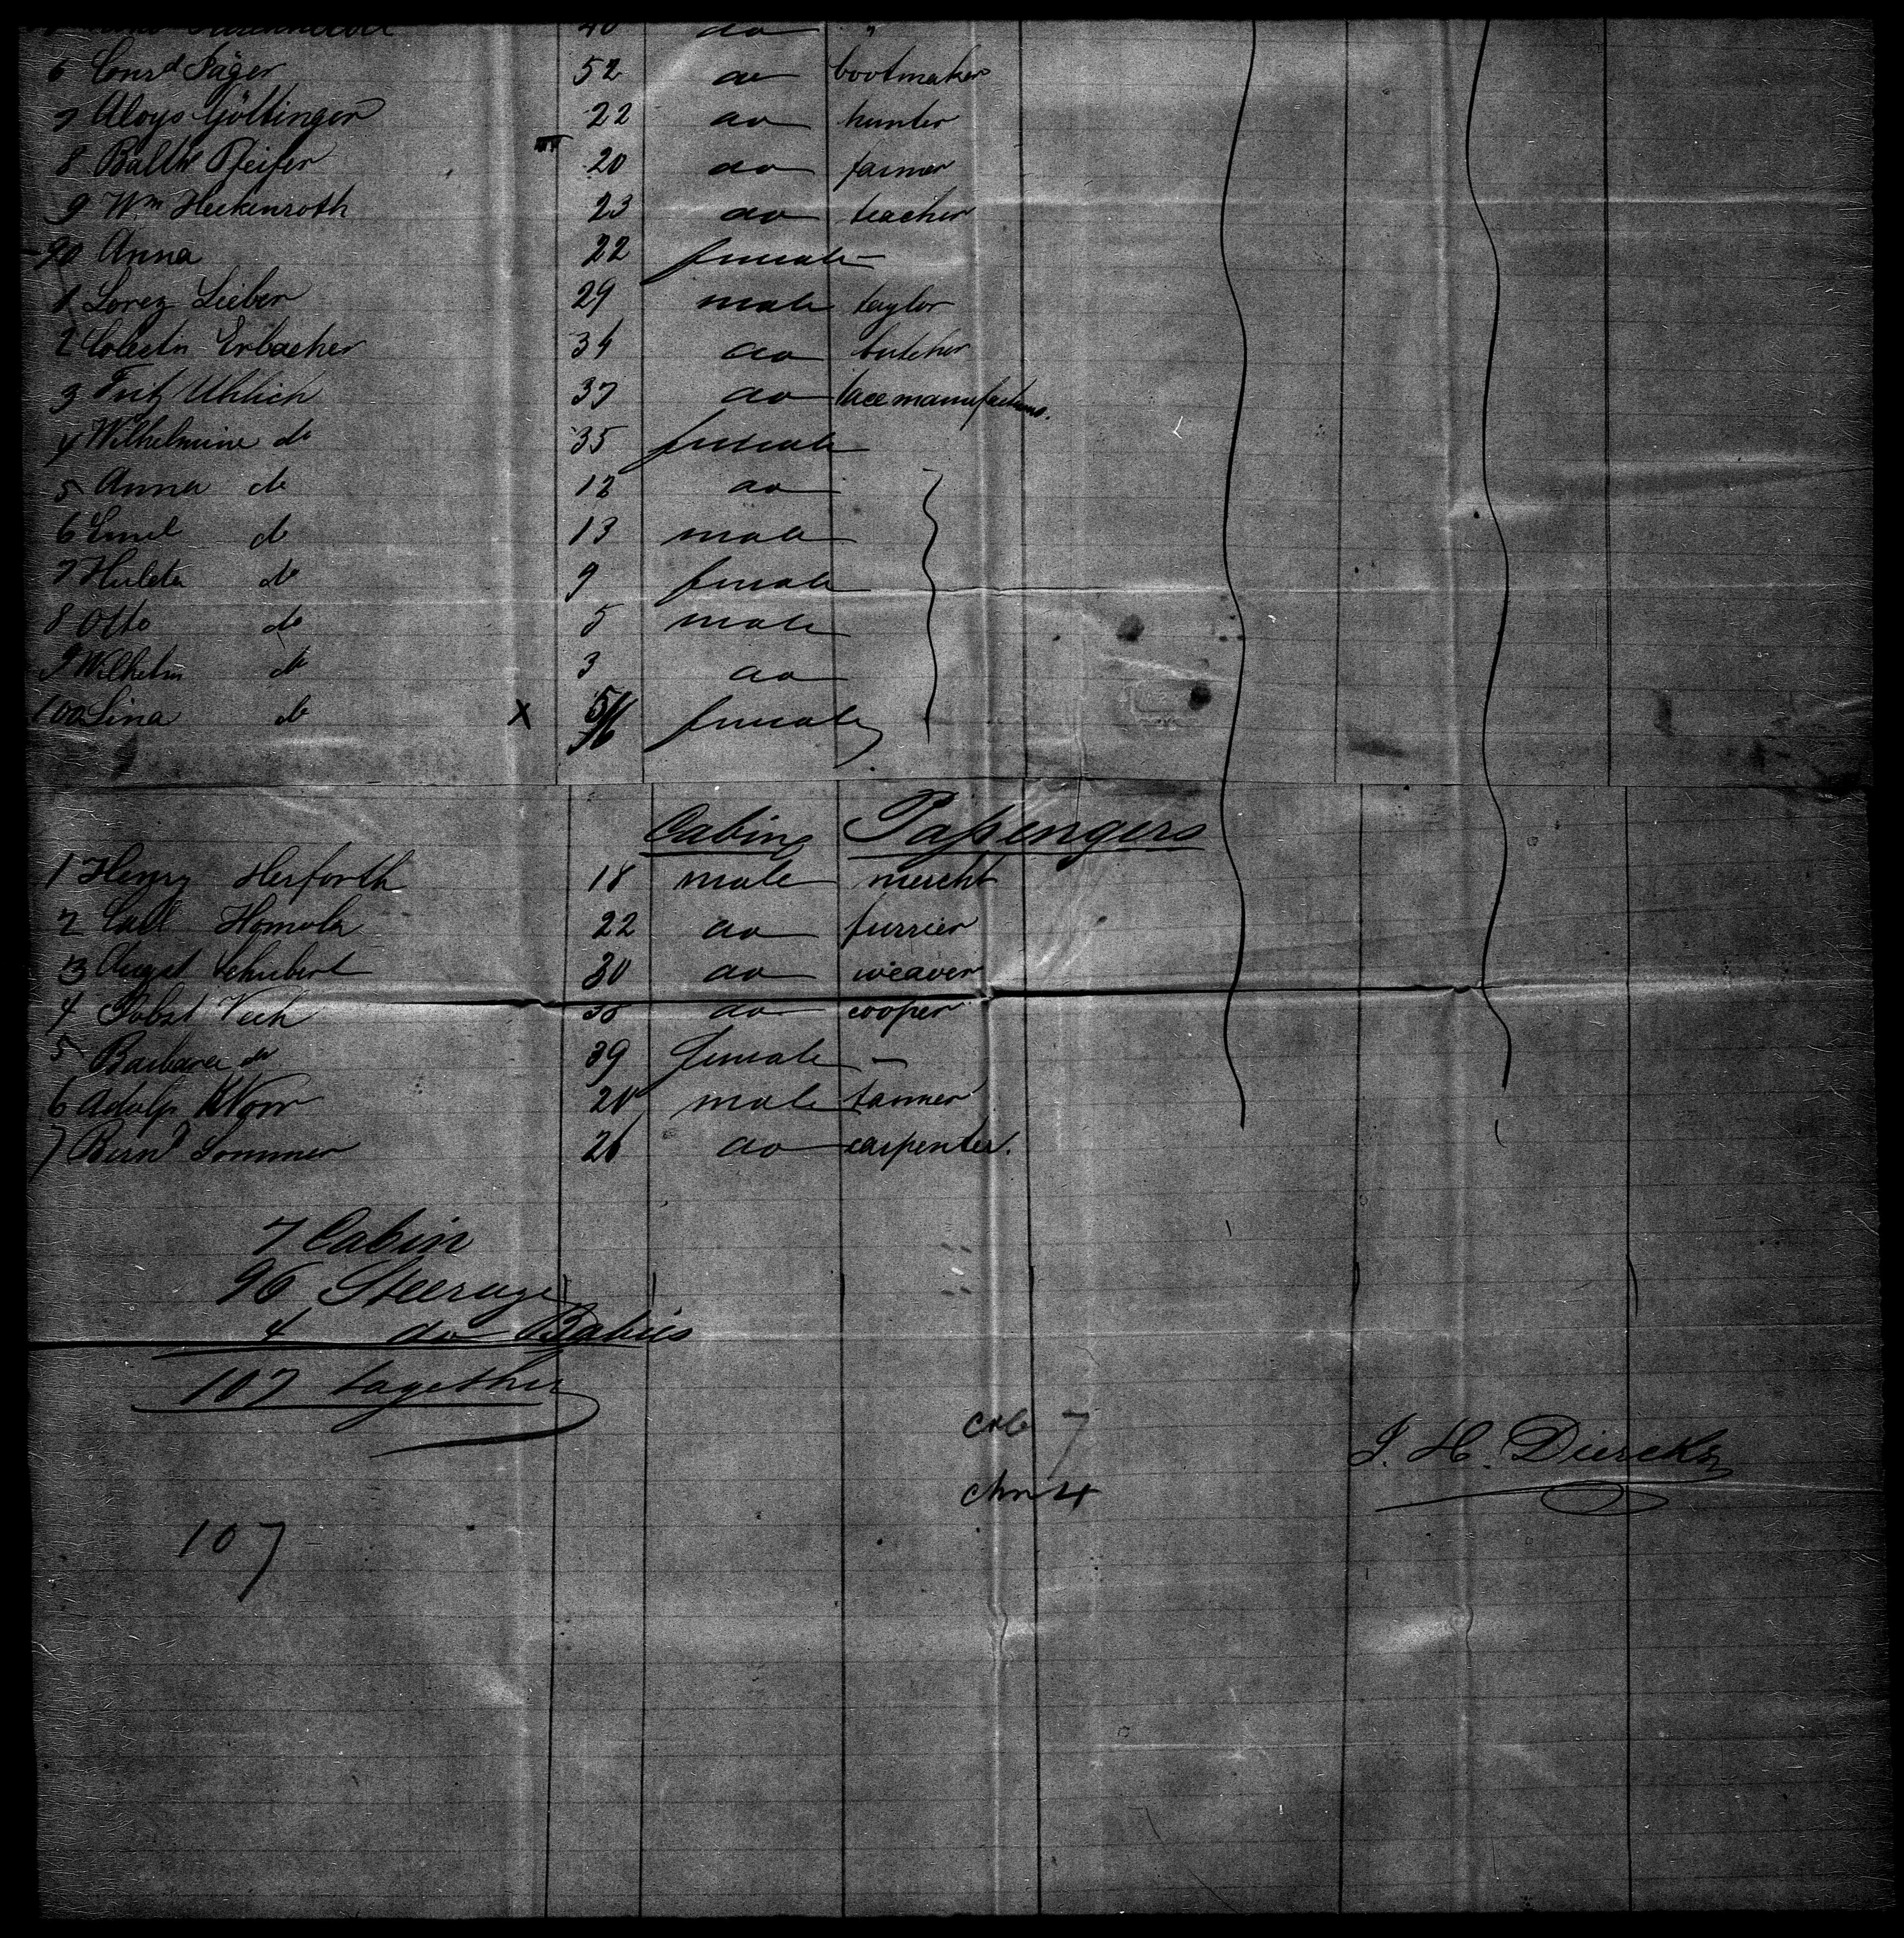 40 do "
6 Consd Jäger 52 do bootmaker
7 Aloys Göltinger 22 do hunter
8 Balth Pfeifer 20 do farmer
9 Wm Heckenroth 23 do teacher
90 Anna 22 female
1 Lorez Lieber 29 male taylor
2 Erbacher 34 do butcher
3 Fritz Uhlich 37 do lacemanufacturer.
4 Wilhelmine do 35 female
5 Anna do 12 do
6 Emil do 13 male
7 Hulda do 9 female
8 Otto do 5 male
9 Wilhelm do 3 do
100 Lina do X female
Cabin Passengers
1 Henry Herforth 18 male mercht
2 Carl Homola 22 do furrier
3 August Schubert 30 do weaver
4 Jobst Vech do cooper
5 Barbara do 39 female —
6 Adolp Klorr 20 male tanner
7 Bernd Sommer 26 do carpenter.
7 Cabin
96 Steerage
4 do Babies
107 together
cab 7
J. H. Diercks
chn 4
107